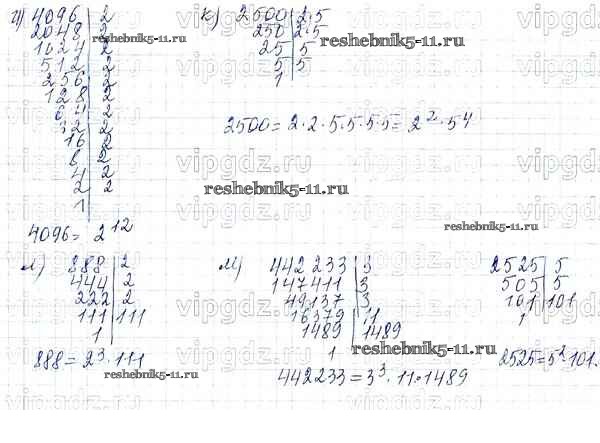 и) 4096 | 2
2048 | 2
1024 | 2
512 | 2
256 | 2
128 | 2
64 | 2
32 | 2
16 | 2
8 | 2
4 | 2
2 | 2
1
4096 = 2¹²
к) 2500 | 2·5
250 | 2·5
25 | 5
5 | 5
1
2500 = 2·2·5·5·5·5 = 2²·5⁴
л) 888 | 2
444 | 2
222 | 2
111 | 111
1
888 = 2³·111
м) 442 233 | 3
147411 | 3
49137 | 3
16379 | 11
1489 | 1489
1
442233 = 3³·11·1489
2525 | 5
505 | 5
101 | 101
1
2525 = 5²·101.
reshebnik5-11.ru
reshebnik5-11.ru
reshebnik5-11.ru
reshebnik5-11.ru
reshebnik5-11.ru
reshebnik5-11.ru
vipgdz.ru